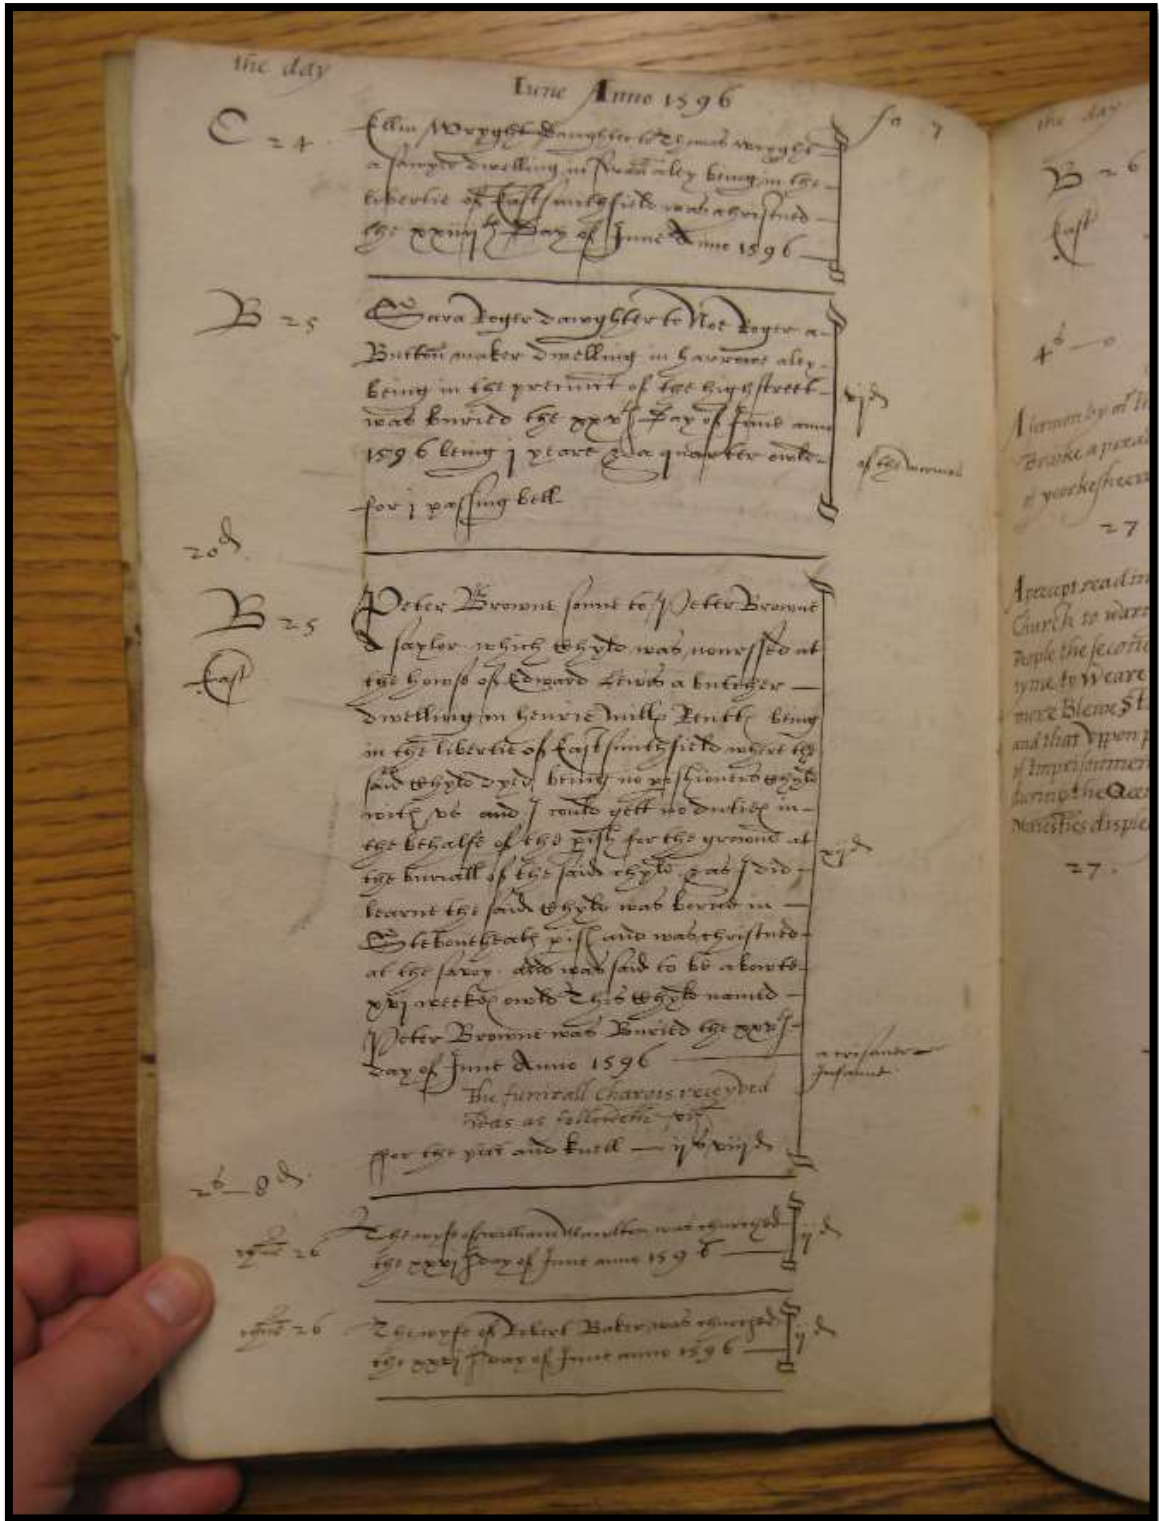 the day
Iune Anno 1596
fo 7
C 24
Ellin Wryght Daughter to Thomas wryght
a sawyer dwelling in Swan aley being in the
libertie of Eastsmithfield was christned
the xxiiijth Day of June Anno 1596
B 25
Sara Roger dawghter to Noe Roger a
Button maker dwelling in harrowe aley
being in the precinct of the highstreet
was buried the xxvth Day of June anno
1596 being j yeare & a quarter owlde
for j passing bell
vjd
of the wormes
20d
B 25
East
Peter Browne sonne to Peter Browne
a saylor which chyld was nourssed at
the howse of Edward Lewis a butcher
dwelling in henrie Mills Rentes being
in the libertie of Eastsmithfield where the
said chyld dyed being no pishioners chyld
with vs and I could gett no duties in
the behalfe of the pish for the grownd at
the buriall of the said chyld & as I did
learne the said chyld was borne in
Stebonheath pish and was christned
at the savoy and was said to be abowte
xvj weekes owld This chyld named
Peter Browne was Buried the xxvth
day of June Anno 1596
The funirall charges receyved
was as followeth viz
ffor the pitt and knell — ijs viijd
xijd
a crisaner
Infannt
2s—8d
26
The wyfe of william Hamilton was churched
the xxvj day of June anno 1596
ijd
26
The wyfe of Robert Baker was churched
the xxvj day of June anno 1596
ijd
the day
B 26
East
4s—0
A sermon by
Brooke a
of yorkesheere
27
A precept read in
Church to warn
People the second
tyme to Weare
more Blewe St
and that vppon
of Imprisonment
during the Quee
Maiesties disple
27.